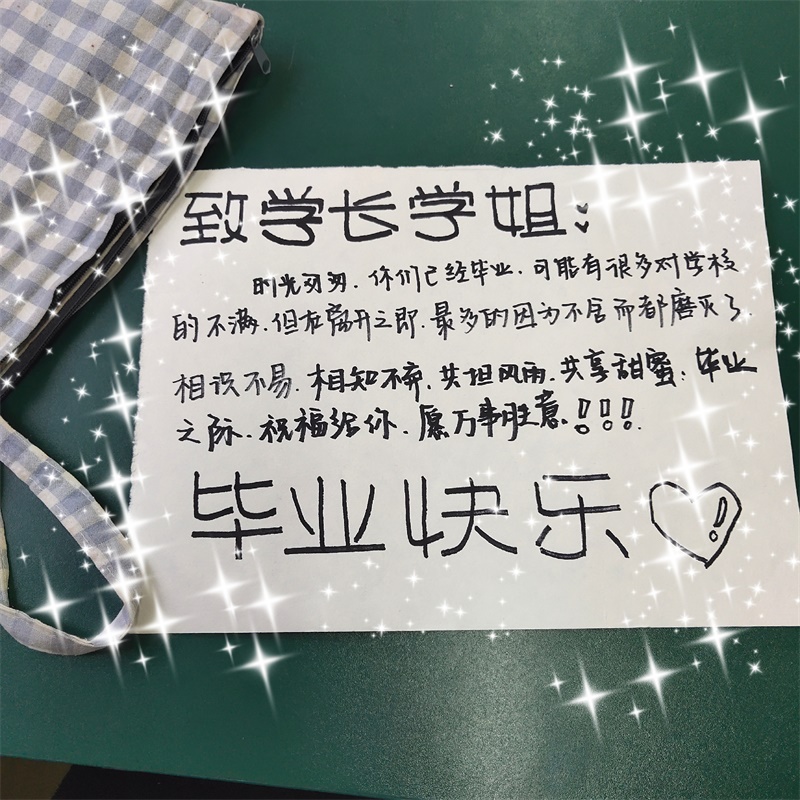 致学长学姐:
时光匆匆.你们已经毕业.可能有很多对学校
的不满.但在离开之即.最多的因为不舍而都磨灭了.
相识不易.相知不弃.共担风雨.共享甜蜜:毕业
之际.祝福给你.愿万事胜意!!!
毕业快乐